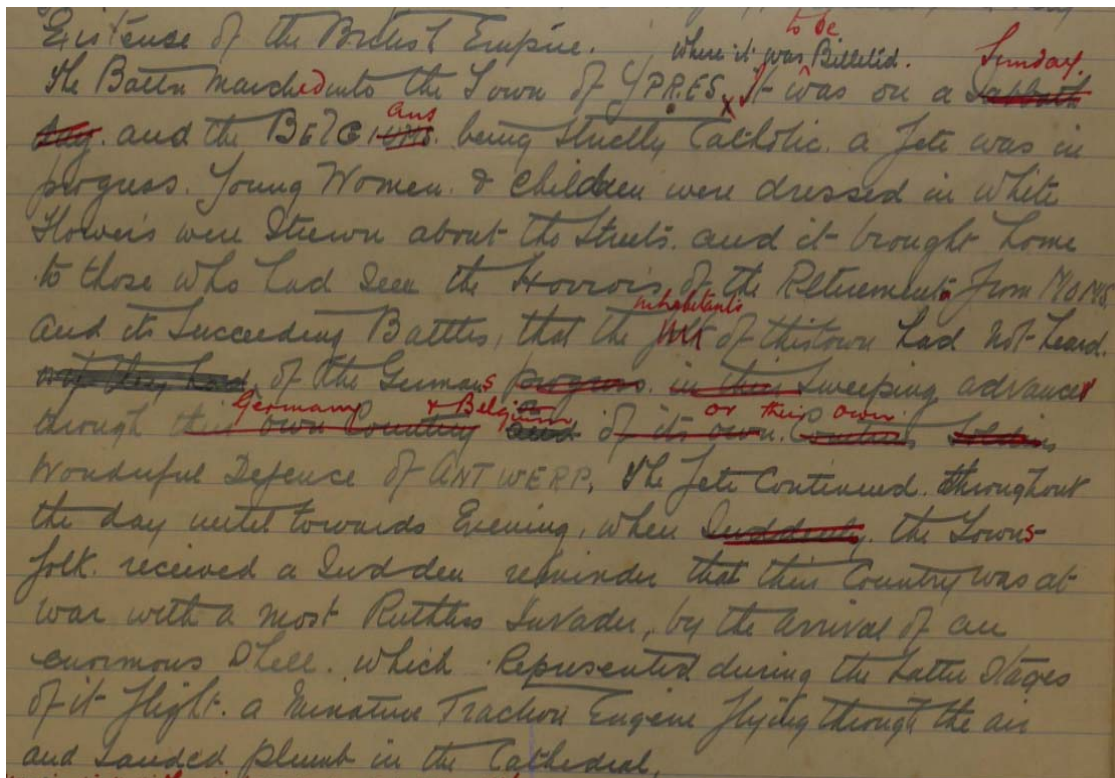 Existense of the British Empire.
to be
where it was Billetid. Sunday.
the Battn marched into the Town of YPRES, It was on a Sabbath
day. and the BELGIUMS. ans being strictly Catholic. a fete was in
progress. Young Women. & children were dressed in white
Flowers were Strewn about the Streets. and it brought home
to those who had seen the Horrors of the Retirement from MONS,
inhabitants
and its Succeeding Battles, that the of this town had not heard.
of the Germans progress. in their sweeping advance
Germany & Belgium or their own
through their own Country and of its own.
Wonderful Defence of ANTWERP, the fete Continued. throughout
the day until towards Evening, when Suddenly. the Towns-
folk. received a Sudden reminder that their Country was at
war with a most Ruthless Invader, by the arrival of an
enormous Shell. which Represented during the latter Stages
of it flight. a Minature Traction Engine flying through the air
and landed plumb in the Cathedral.